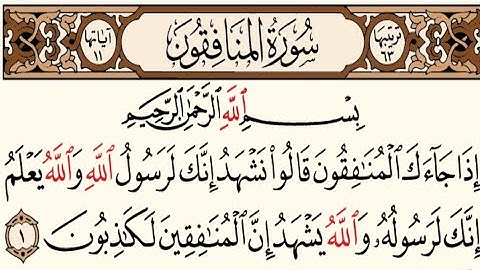 ترتيبها ٦٣
سورة المنافقون
آياتها ١١
بِسْمِ اللَّهِ الرَّحْمَٰنِ الرَّحِيمِ
إِذَا جَآءَكَ ٱلْمُنَٰفِقُونَ قَالُوا۟ نَشْهَدُ إِنَّكَ لَرَسُولُ ٱللَّهِ وَٱللَّهُ يَعْلَمُ
إِنَّكَ لَرَسُولُهُۥ وَٱللَّهُ يَشْهَدُ إِنَّ ٱلْمُنَٰفِقِينَ لَكَٰذِبُونَ ١